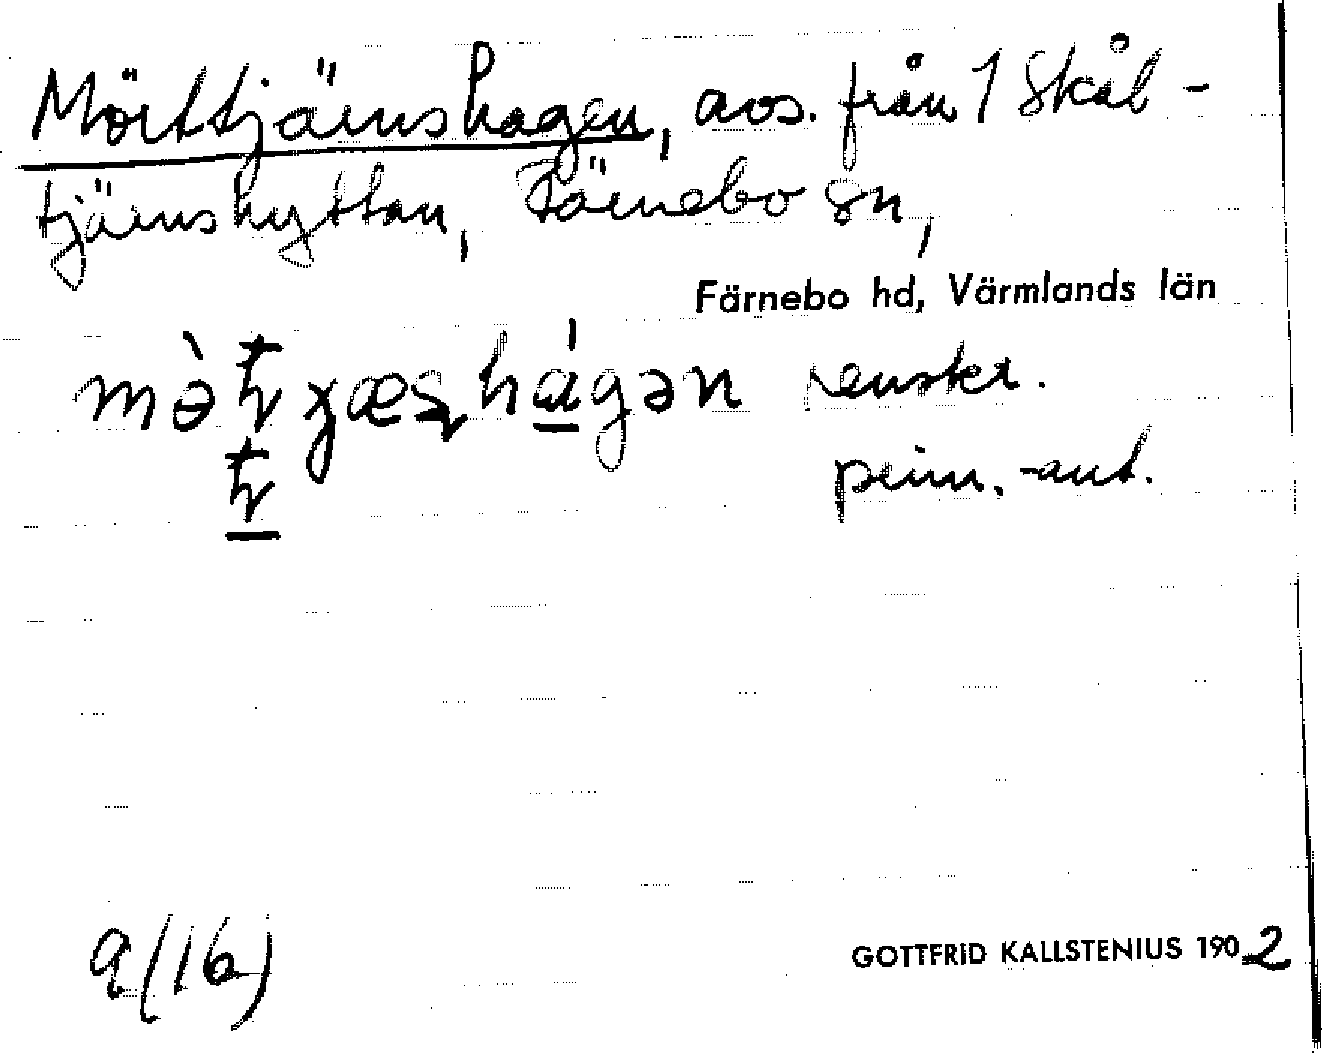 Mörttjärnshagen, avs. från 1 Skål-
tjärnshyttan, Färnebo sn,
Färnebo hd, Värmlands län
renskr.
prim.-ant.
9(16)
GOTTFRID KALLSTENIUS 1902